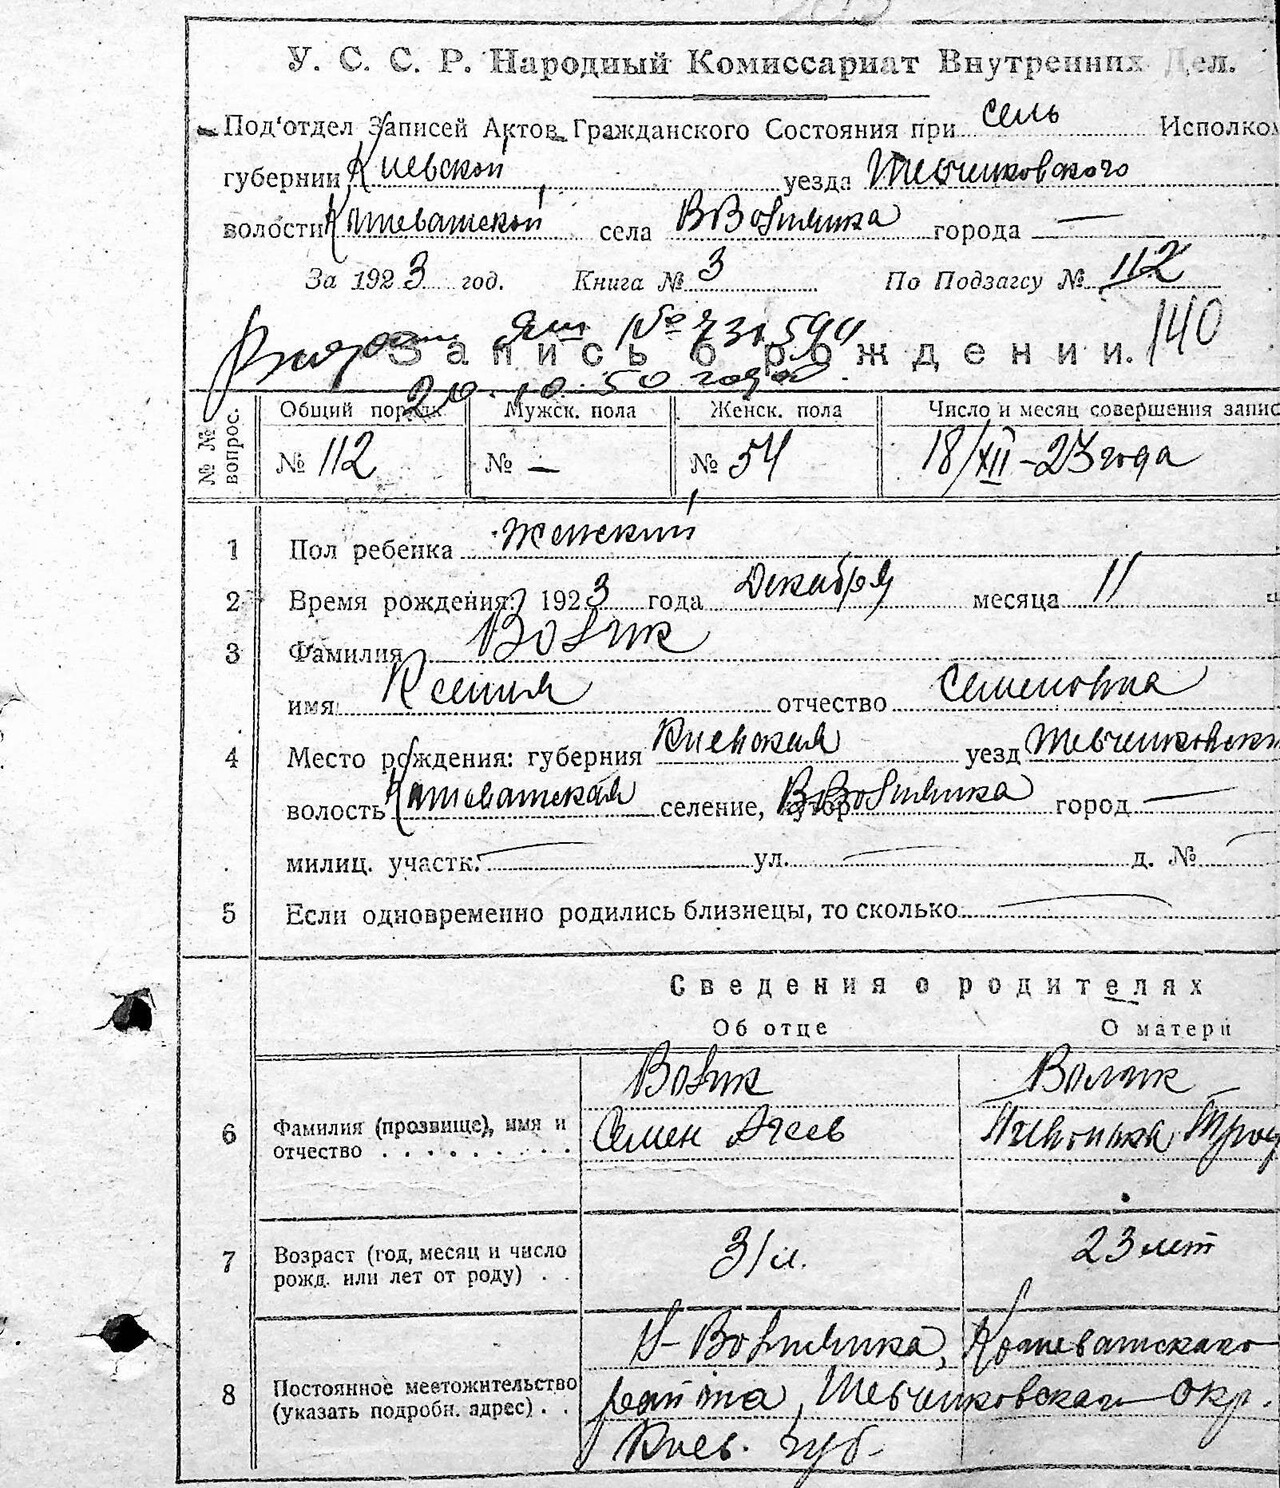 У. С. С. Р. Народный Комиссариат Внутренних Дел.
Под'отдел Записей Актов Гражданского Состояния при сель Исполком
губернии Киевской уезда Шевченковского
волости села города —
За 1923 год. Книга № 3 По Подзагсу № 112
№ 731594 140
Запись о рождении.
20.10.50 года.
№ № вопрос. Общий порядк. Мужск. пола Женск. пола Число и месяц совершения запис
№ 112 № — № 54 18/XII-23 года
1 Пол ребенка женский
2 Время рождения: 1923 года Декабря месяца 11
3 Фамилия Вовчик
имя Ксения отчество Семеновна
4 Место рождения: губерния Киевская уезд Шевченковск
волость селение, город —
милиц. участк. — ул. — д. № —
5 Если одновременно родились близнецы, то сколько —
Сведения о родителях
Об отце О матери
Вовчик
6 Фамилия (прозвище), имя и отчество . . . . . . . . . Семен
7 Возраст (год, месяц и число рожд. или лет от роду) . . 31 л. 23 лет
8 Постоянное местожительство (указать подробн. адрес) . .
района, Шевченковская окр.
Киев. губ.